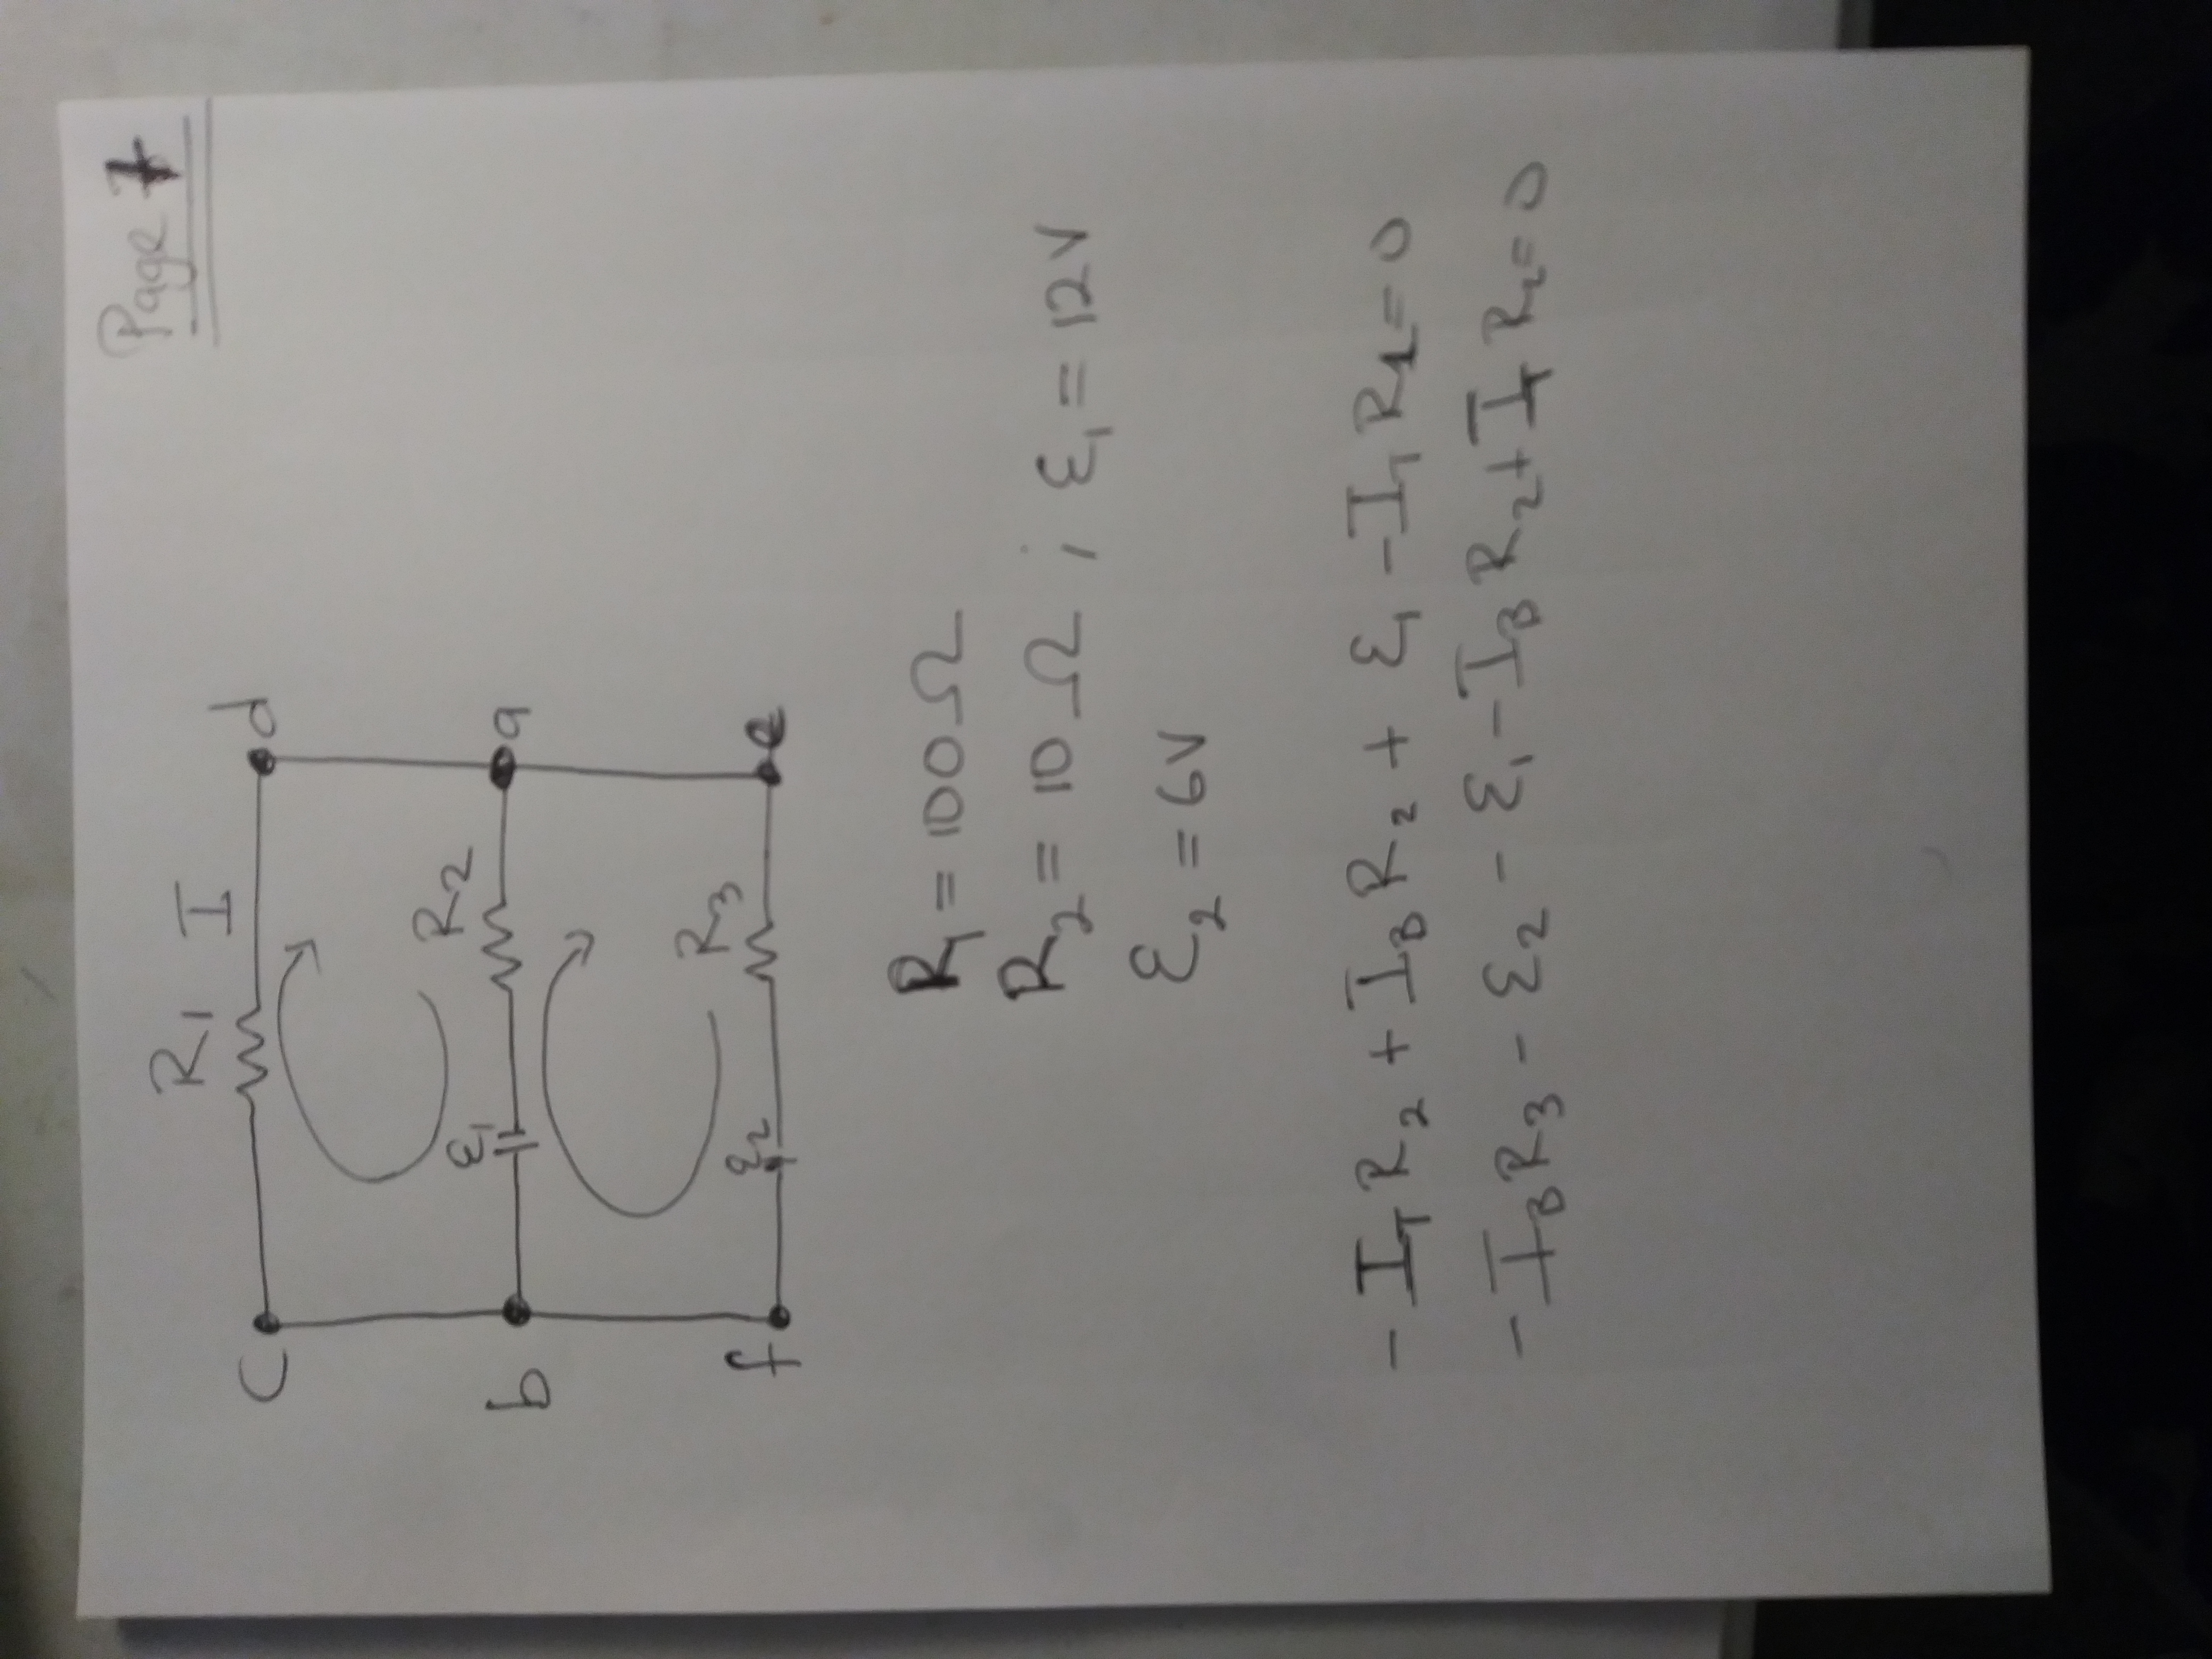 Page 7
R1 I
c d
ε1 R2
b a
ε2 R3
f e
R1 = 100Ω
R2 = 10Ω ; ε1 = 12V
ε2 = 6V
- IT R2 + IB R2 + ε1 - IT R1 = 0
- IB R3 - ε2 - ε1 - IB R2 + IT R2 = 0